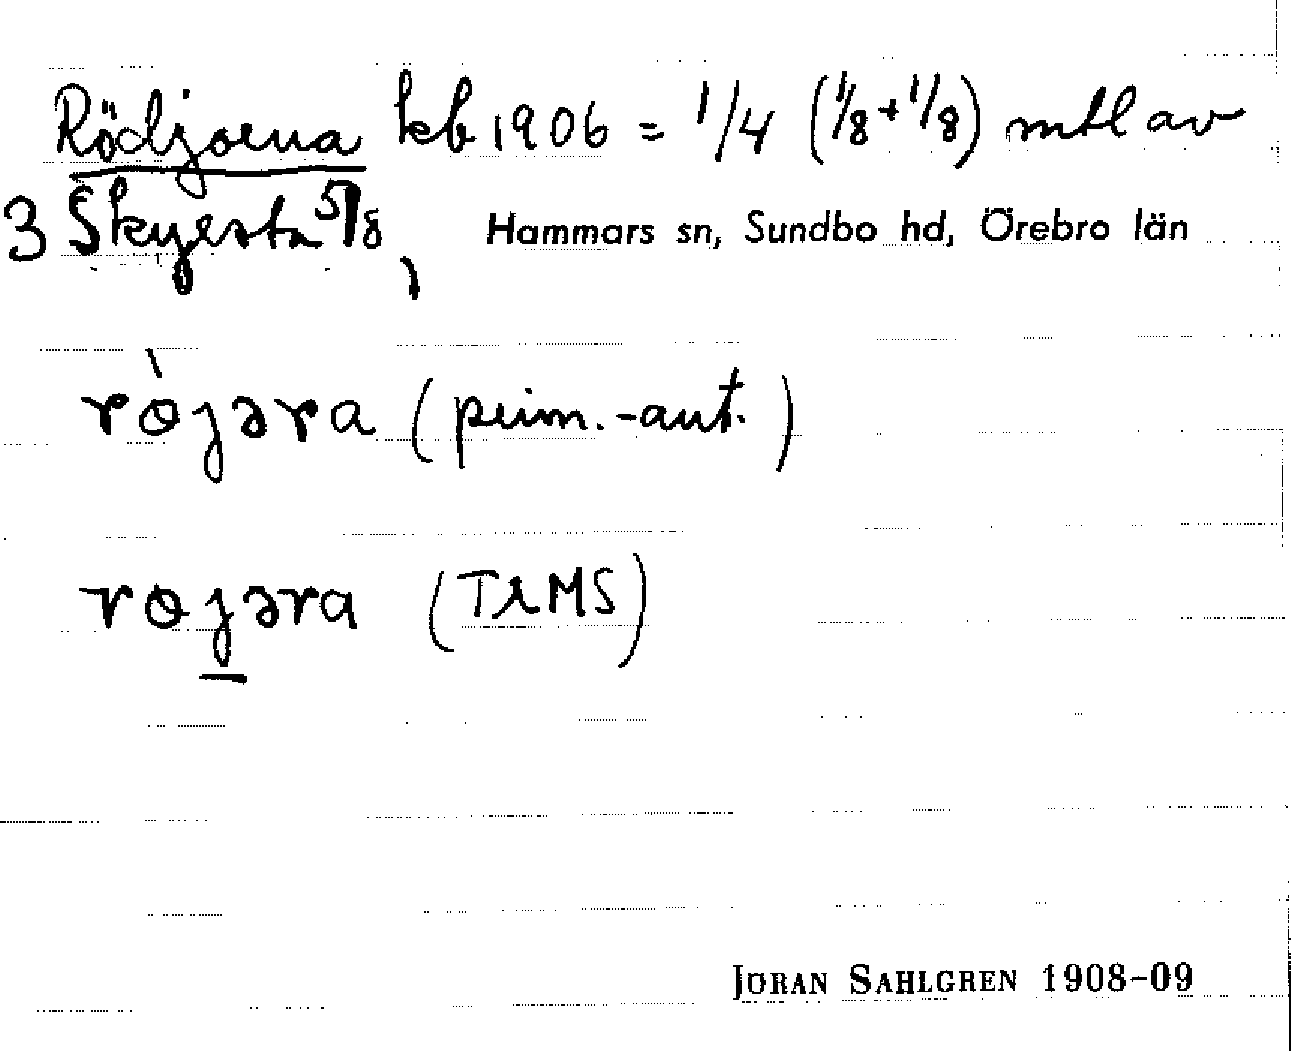 Rödjorna kb 1906 = 1/4 (1/8 + 1/8) mtl av
3 Skyesta 5/8,
Hammars sn, Sundbo hd, Örebro län
rò̵jəra (prim.-ant.)
rɵjəra (TRMS)
JÖRAN SAHLGREN 1908-09